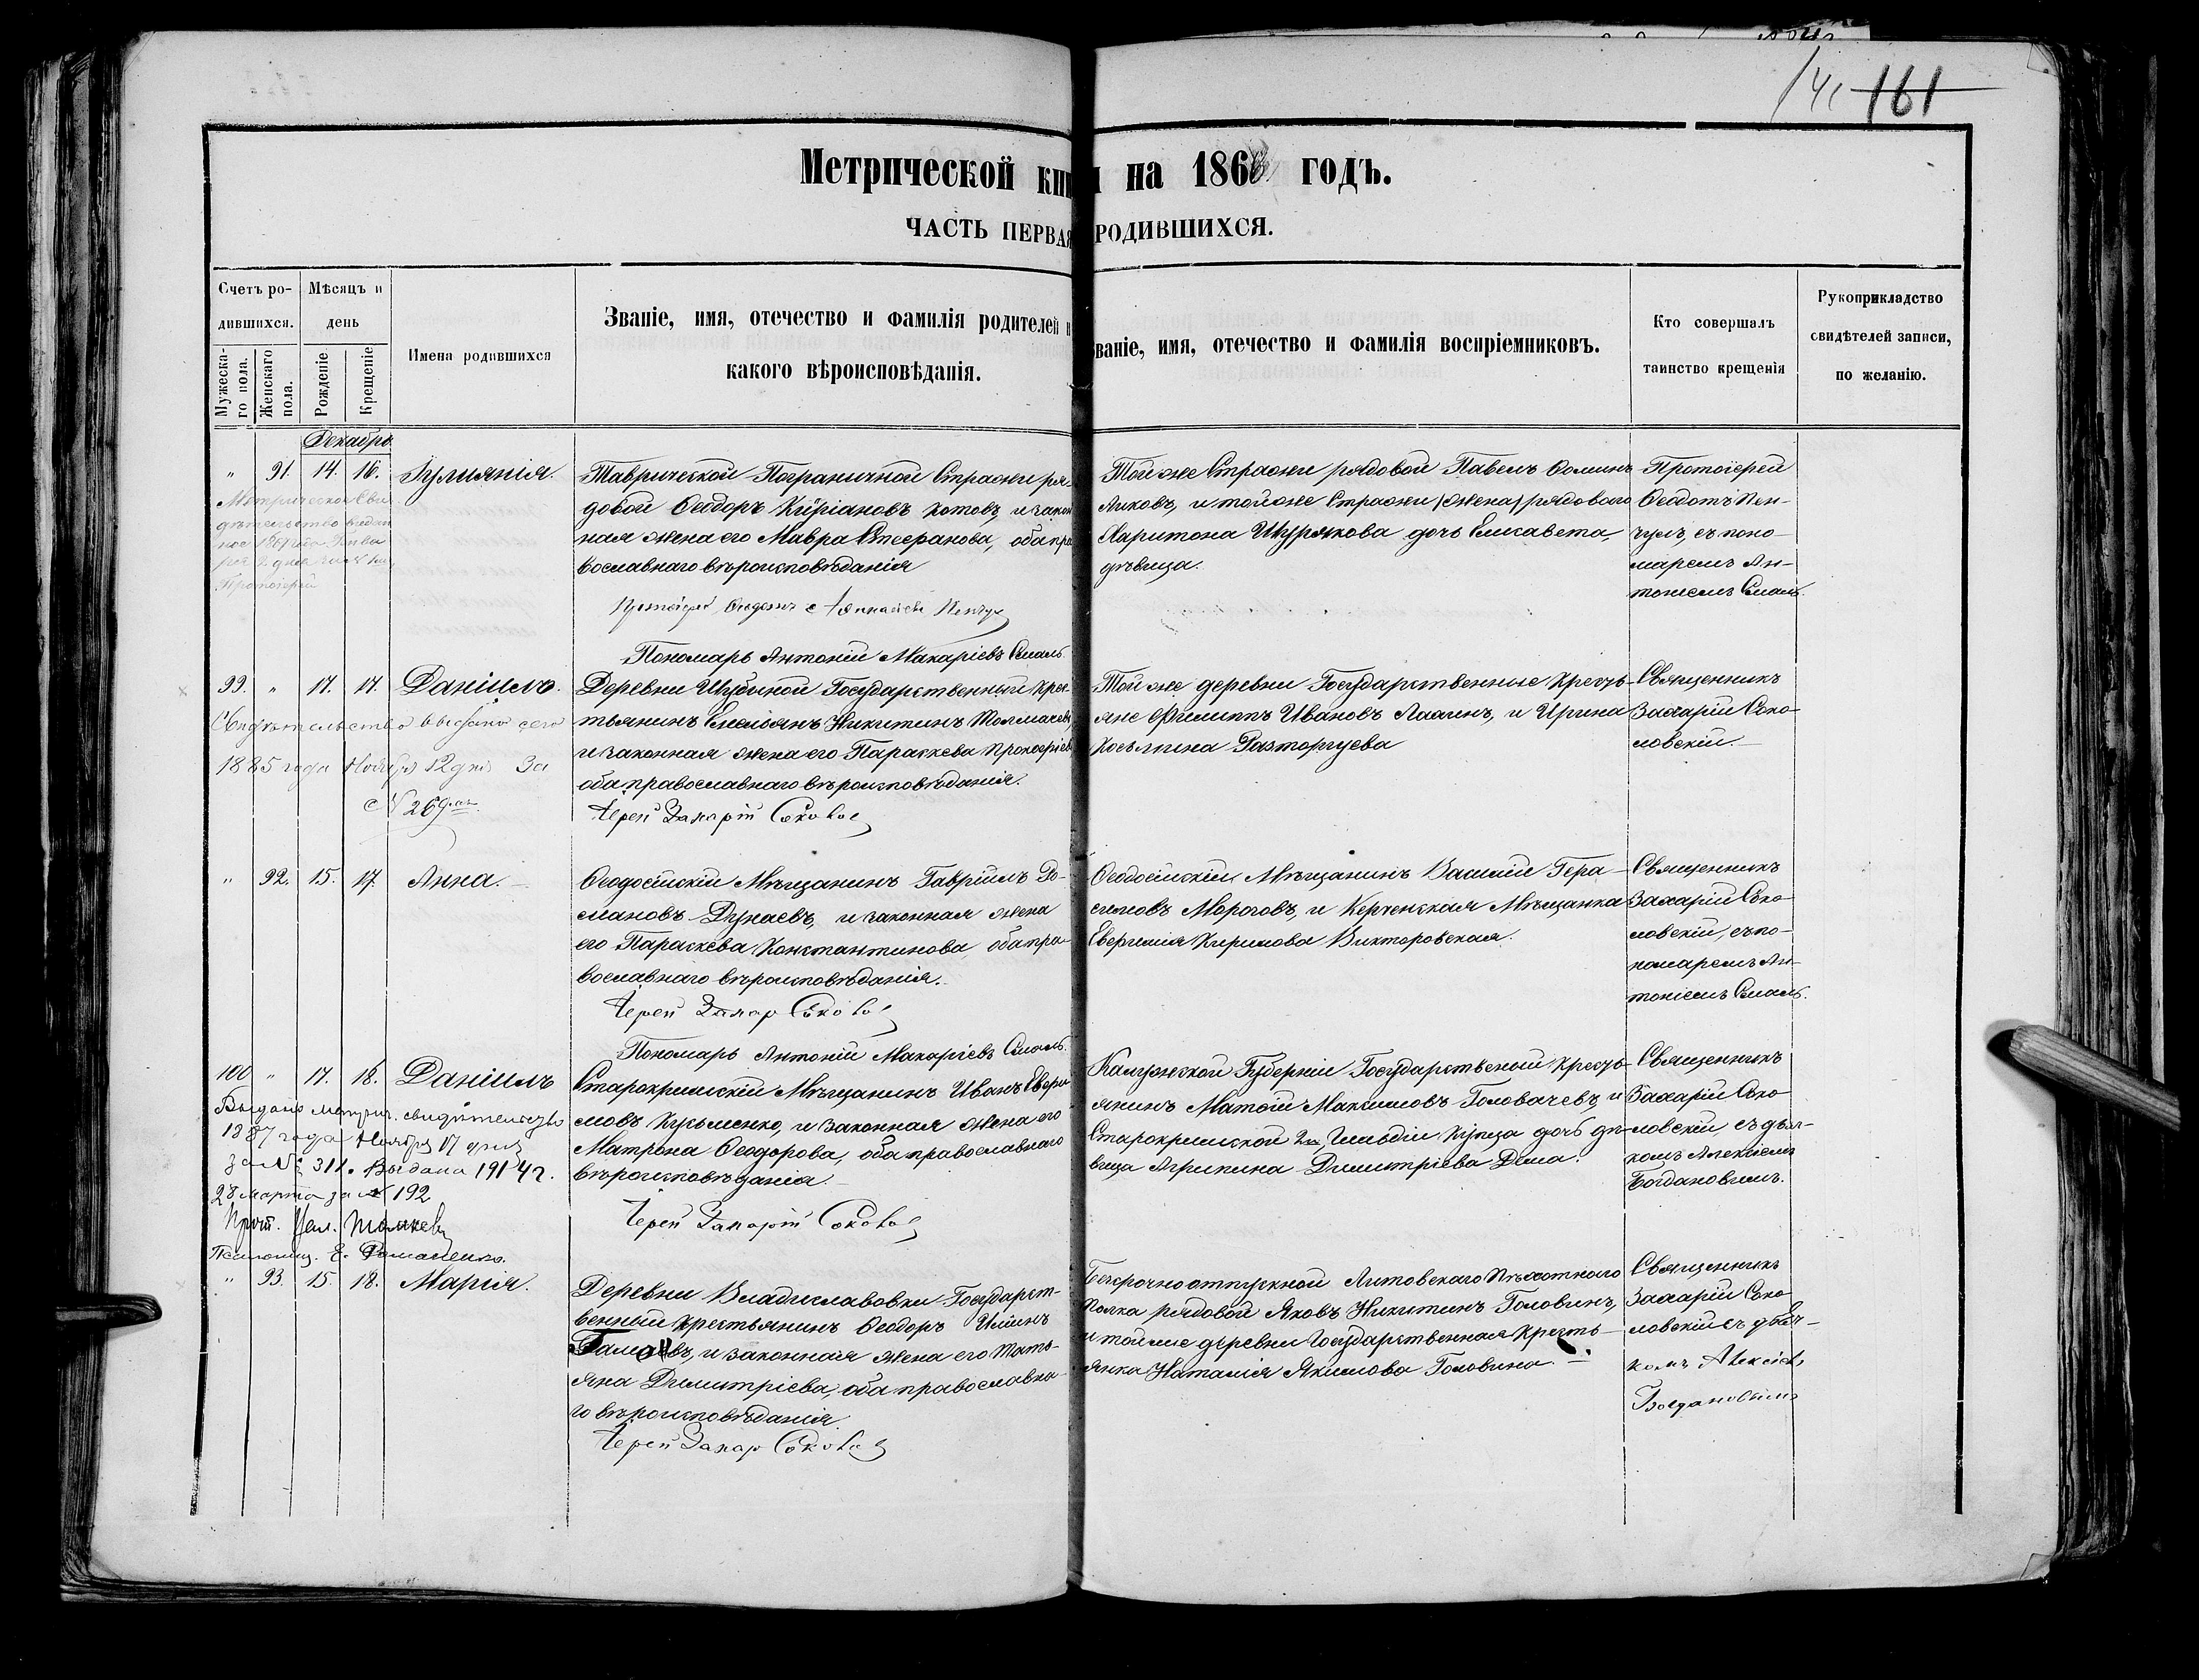 141 161
Метрической книги на 1866 годъ.
ЧАСТЬ ПЕРВАЯ РОДИВШИХСЯ.
Счетъ родившихся.
Мужескаго пола.
Женскаго пола.
Мѣсяцъ и день
Рожденіе
Крещеніе
Имена родившихся
Званіе, имя, отечество и фамилія родителей и
какого вѣроисповѣданія.
Званіе, имя, отечество и фамилія воспріемниковъ.
Кто совершалъ
таинство крещенія
Рукоприкладство
свидѣтелей записи,
по желанію.
Декабрь
" 91. 14. 16. Іуліянія.
Метрическое Сви-
дѣтельство выдан
Протоіерей
Таврической Пограничной Стражи ря-
довой Ѳеодоръ Кипріановъ Котовъ, и закон
ная жена его Мавра Стефанова, оба пра
вославнаго вѣроисповѣданія
Протоіерей Ѳеодотъ
Пономарь Антоній Макаріевъ Смаль
Той же Стражи рядовой Павелъ Ѳоминъ
Лыковъ, и той же Стражи (жена) рядоваго
Харитона Шурякова дочь Елисавета,
дѣвица.
Протоіерей
Ѳеодотъ Пен-
чулъ, съ поно-
маремъ Ан-
тоніемъ Смаль.
99. " 17. 17. Даніилъ.
Свидѣтельство выдано сего
1885 года Ноября 12 дня За
№ 269
Деревни Шубиной Государственный крес-
тьянинъ Емеліянъ Никитинъ Толмачевъ,
и законная жена его Параскева Прокофіев
оба православнаго вѣроисповѣданія.
Іерей Захарій Соколов
Той же деревни Государственные кресть-
яне Филиппъ Ивановъ Ламинъ, и Ирина
Косьмина Разторгуева
Священникъ
Захарій Соко-
ловскій.
" 92. 15. 17. Анна.
Ѳеодосійскій Мѣщанинъ Гавріилъ Ро-
мановъ Дунаевъ, и законная жена
его Параскева Константинова, оба пра-
вославнаго вѣроисповѣданія.
Іерей Захар Соколов
Пономарь Антоній Макаріевъ Смаль.
Ѳеодосійскій Мѣщанинъ Василій Гера-
симовъ Мороговъ, и Керченская Мѣщанка
Евфимія Кирилова Викторовская.
Священникъ
Захарій Соко-
ловскій, съ по-
номаремъ Ан-
тоніемъ Смаль.
100 " 17. 18. Даніилъ
Выдано метрич. свидѣтельство
1887 года Ноября 17 дня
за № 311. Выдана 1914 г.
28 марта за № 192
Прот.
Псаломщ. Е. Романенко.
Старокрымскій Мѣщанинъ Иванъ Евфи-
мовъ Кузьменко, и законная жена его
Матрона Ѳеодорова, оба православнаго
вѣроисповѣданія.
Іерей Захарій Соколов
Калужской Губерніи Государственный кресть-
янинъ Матѳій Максимовъ Головачевъ, и
Старокрымской 2й Гильдіи Купца дочь дѣ-
вица Агрипина Димитріева Дема.
Священникъ
Захарій Соко-
ловскій, съ дьяч-
комъ Алексіемъ
Богдановымъ.
" 93. 15. 18. Марія.
Деревни Владиславовки Государст-
венный крестьянинъ Ѳеодоръ Илiинъ
Гамаѣвъ, и законная жена его Тать-
яна Димитріева, оба православна-
го вѣроисповѣданія
Іерей Захар Соколов
Безсрочноотпускной Литовскаго Пѣхотнаго
Полка рядовой Яковъ Никитинъ Головинъ,
и той же деревни Государственная кресть-
янка Наталія Якимова Головина.
Священникъ
Захарій Соко-
ловскій съ дьяч-
комъ Алексіемъ
Богдановымъ